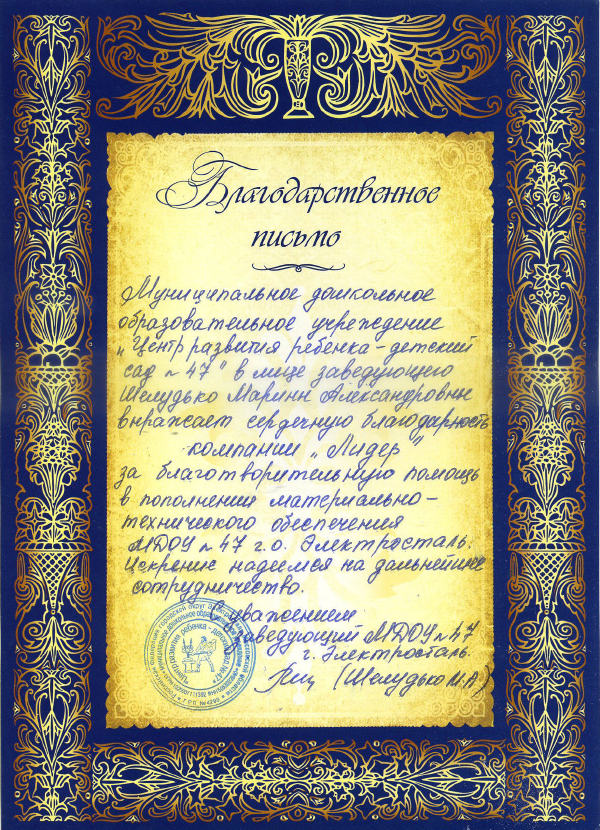 Благодарственное
письмо
Муниципальное дошкольное
образовательное учреждение
„Центр развития ребенка - детский
сад № 47" в лице заведующего
Шелудько Марины Александровны
выражает сердечную благодарность
компании „Лидер"
за благотворительную помощь
в пополнении материально-
технического обеспечения
МДОУ № 47 г.о. Электросталь.
Искренне надеемся на дальнейшее
сотрудничество.
С уважением
заведующий МДОУ № 47
г. Электросталь.
(Шелудько М.А.)